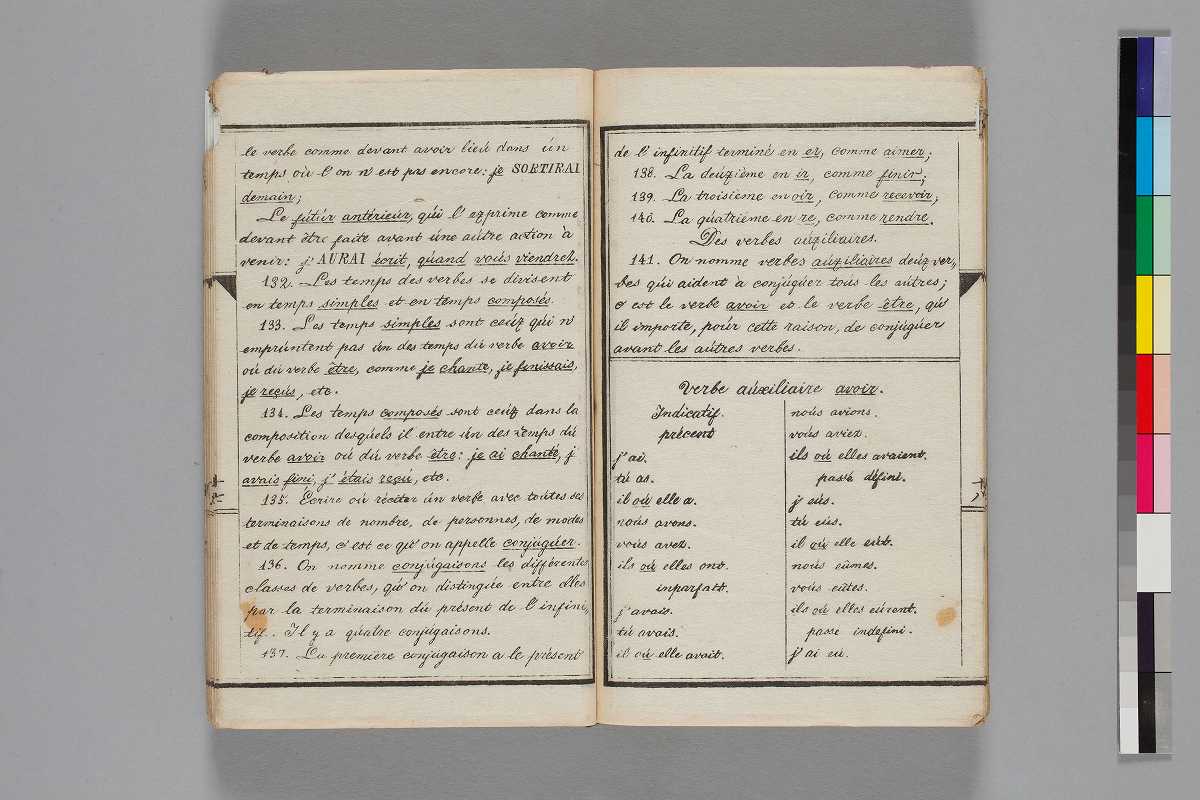 le verbe comme devant avoir lieú dans ún
temps où l'on n'est pas encore: je SORTIRAI
demain;
Le fútúr antérieúr, qúi l'exprime comme
devant être faite avant úne aútre action à
venir: j'AURAI écrit, qúand voús viendrez.
132. Les temps des verbes se divisent
en temps simples et en temps composés.
133. Les temps simples sont ceúx qúi n'
emprúntent pas ún des temps dú verbe avoir
oú dú verbe être, comme je chante, je finissais,
je reçús, etc.
134. Les temps composés sont ceúx dans la
composition desqúels il entre ún des temps dú
verbe avoir oú dú verbe être: je ai chanté, j'
avais fini, j'étais reçú, etc.
135. Écrire oú réciter ún verbe avec toútes ses
terminaisons de nombre, de personnes, de modes
et de temps, c'est ce qú'on appelle conjúgúer.
136. On nomme conjúgaisons les différentes
classes de verbes, qú'on distingúe entre elles
par la terminaison dú présent de l'infini,,
tif. Il y a qúatre conjúgaisons.
137. La première conjúgaison a le présent
de l'infinitif terminé en er, comme aimer;
138. La deúxième en ir, comme finir;
139. La troisième en oir, comme recevoir;
140. La qúatrième en re, comme rendre.
Des verbes aúxiliaires.
141. On nomme verbes aúxiliaires deúx ver,,
bes qúi aident à conjúgúer toús les aútres;
c'est le verbe avoir et le verbe être, qú'
il importe, poúr cette raison, de conjúgúer
avant les aútres verbes.
Verbe aúxiliaire avoir.
Indicatif.
précent
j'ai.
tú as.
il oú elle a.
noús avons.
voús avez.
ils oú elles ont.
inparfait.
j'avais.
tú avais.
il oú elle avait.
noús avions.
voús aviez.
ils oú elles avaient.
passé défini.
j'eús.
tú eús.
il oú elle eút.
noús eûmes.
voús eûtes.
ils oú elles eúrent.
passe indefini.
j'ai eú.